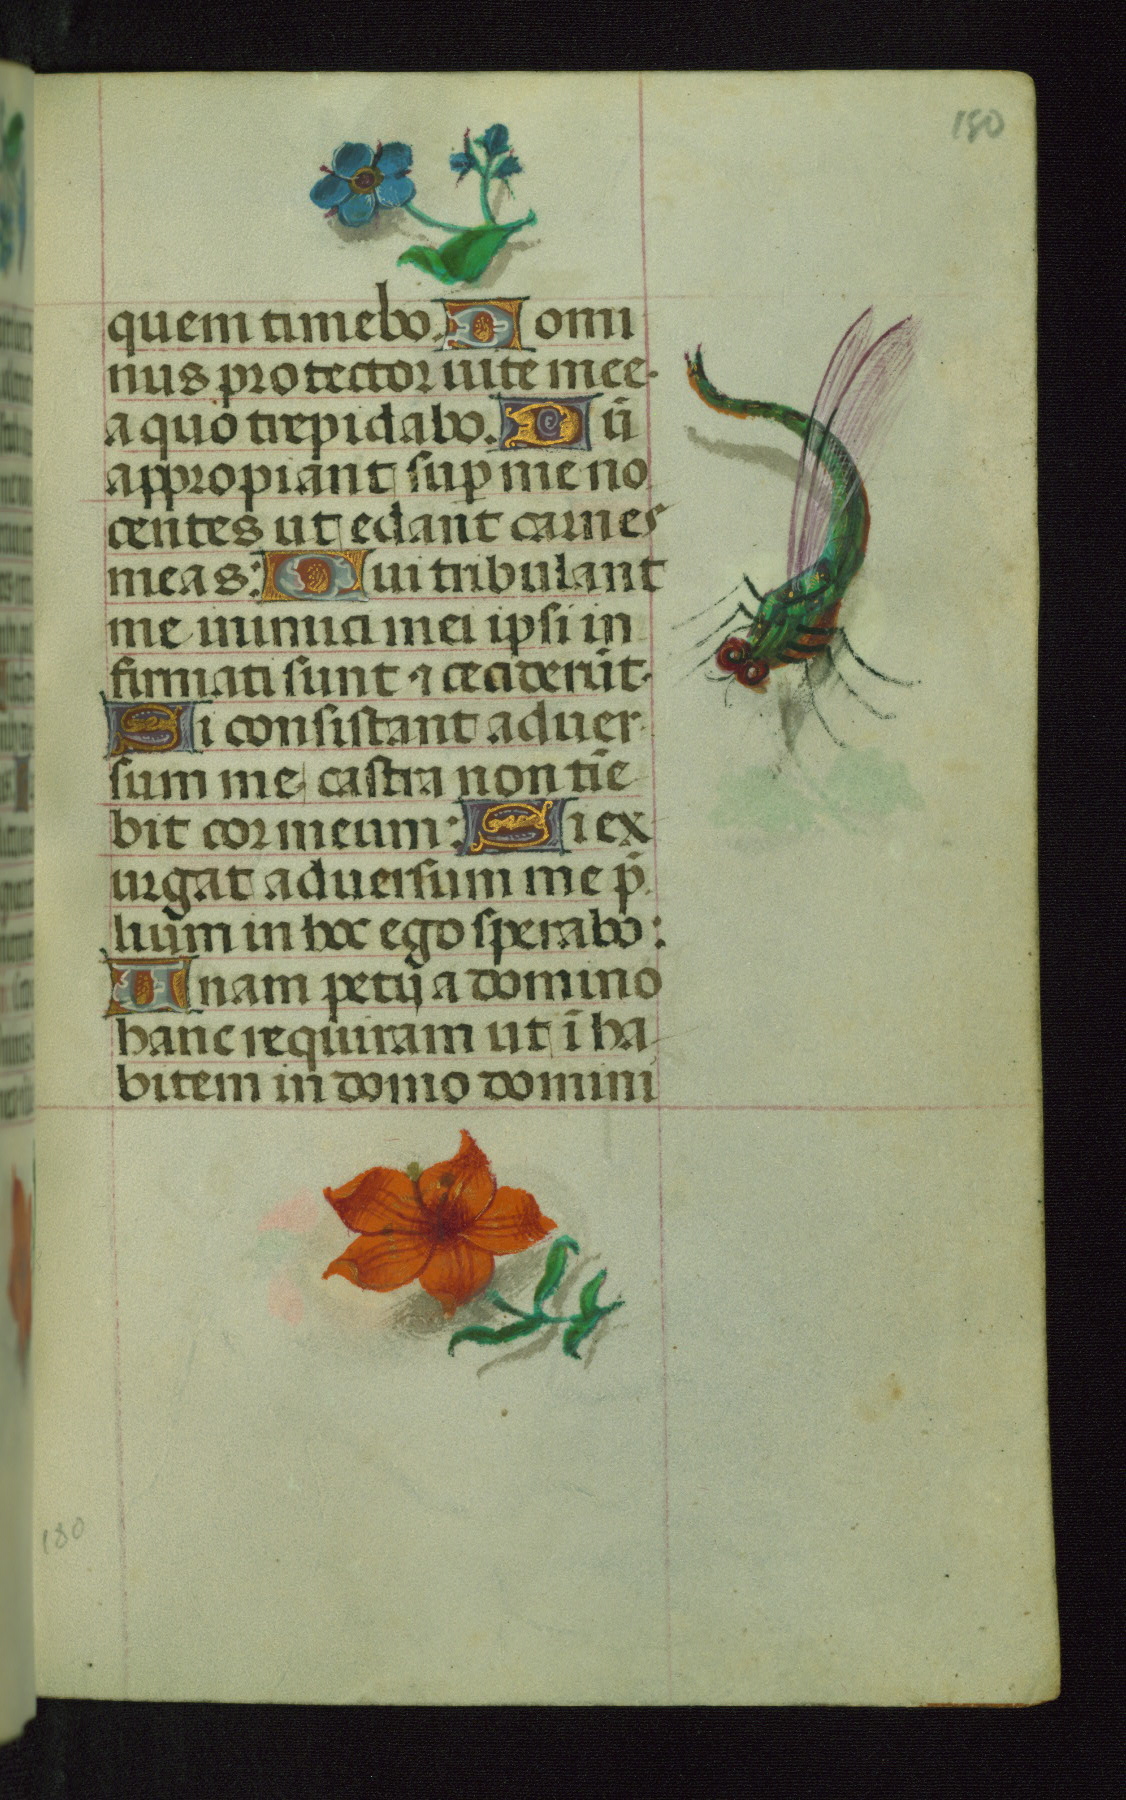 180
quem timebo. Domi
nus protector uite mee.
a quo trepidabo. Dū
appropiant sup me no
centes ut edant carnes
meas: Qui tribulant
me inimici mei ipsi in
firmati sunt ⁊ ceciderūt.
Si consistant aduer
sum me castra non tiē
bit cor meum: Si ex
urgat aduersum me p̄
lium in hoc ego sperabo:
Unam petij a domino
hanc requiram ut ī ha
bitem in domo domini
180